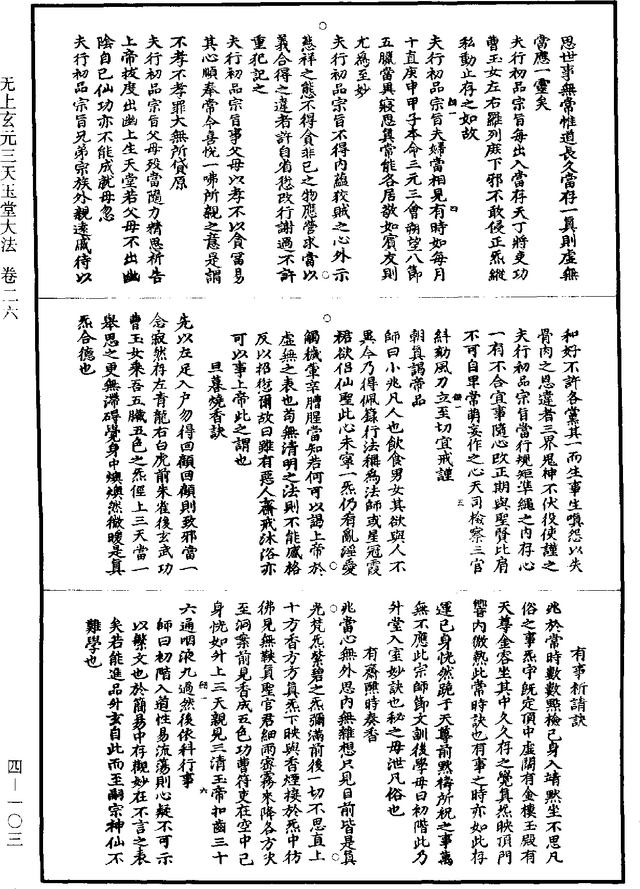 思世事無常惟道長久當存一真則虛無
當應一靈矣
夫行初品宗旨每出入當存天丁將吏功
曹玉女左右羅列庶下邪不敢侵正炁縱
私動止存之如故
夫行初品宗旨夫婦當相見有時如每月
十直庚申甲子本命三元三會朔望八節
五臘當異寢思真常能各居敬如賓友則
尤為至妙
夫行初品宗旨不得內蘊狡賊之心外示
慈祥之態不得貪非己之物應營求當以
義合得之違者許自省愆改行謝過不許
重犯記之
夫行初品宗旨事父母以孝不以貧富易
其心順奉常令喜悅一咈所親之意是謂
不孝不孝罪大無所貸原
夫行初品宗旨父母歿當隨力精思祈告
上帝拔度出幽上生天堂若父母不出幽
陰自己仙功亦不能成就毋忽
夫行初品宗旨兄弟宗族外親遠戚待以
和好不許各黨其一而生事生嗔怨以失
骨肉之恩違者三界鬼神不伏役使謹之
夫行初品宗旨當行規矩準繩之內存心
一有不合宜事隨心改正期與聖賢比肩
不可自卑常萌妄作之心天司檢察三官
糾劾風刀立至切宜戒謹
朝真謁帝品
師曰小兆凡人也飲食男女其欲與人不
異今乃得佩籙行法稱為法師或星冠霞
裙欲侶仙聖此心未寧一炁仍看亂淫愛
觸穢葷辛膻腥當知若何可以謁上帝於
虛無之表也苟無清明之法則不能感格
反以招愆爾故曰雖有惡人齋戒沐浴亦
可以事上帝此之謂也
旦暮燒香訣
先以左足入戶勿得回顧回顧則致邪當一
念寂然存左青龍右白虎前朱雀後玄武功
曹玉女乘吾五臟五色之炁徑上三天當一
舉思之更無滯碍覺身中燠燠然微暖是真
炁合德也
有事祈請訣
兆於常時數數點檢己身入靖默坐不思凡
俗之事炁字既定頂中虛闊有金樓玉殿有
天尊金容坐其中久久存之覺真炁映頂門
響內微熱此常時訣也有事之時亦如此存
運已身恍然跪于天尊前默禱所祝之事萬
無不應此宗師節文訓後學毋曰初階此乃
升堂入室妙訣也秘之毋泄凡俗也
有齋醮時奏香
兆當心無外思內無雜想只見目前皆是真
光梵炁縈碧之炁彌滿前後一切不思直上
十方香方方真炁下映與香煙接於炁中彷
彿見無鞅真聖官君細雨密霧來降各方次
至洞案前見香成五色功曹符吏在空中己
身恍如升上三天親見三清玉帝扣齒三十
六通咽液九過然後依科行事
師曰初階入道性易流蕩則心疑不可示
以繁文也於簡易中存觀妙在不言之表
矣若能進品升玄自此而至嗣宗神仙不
難學也
无上玄元三天玉堂大法 卷二六
四—一〇三